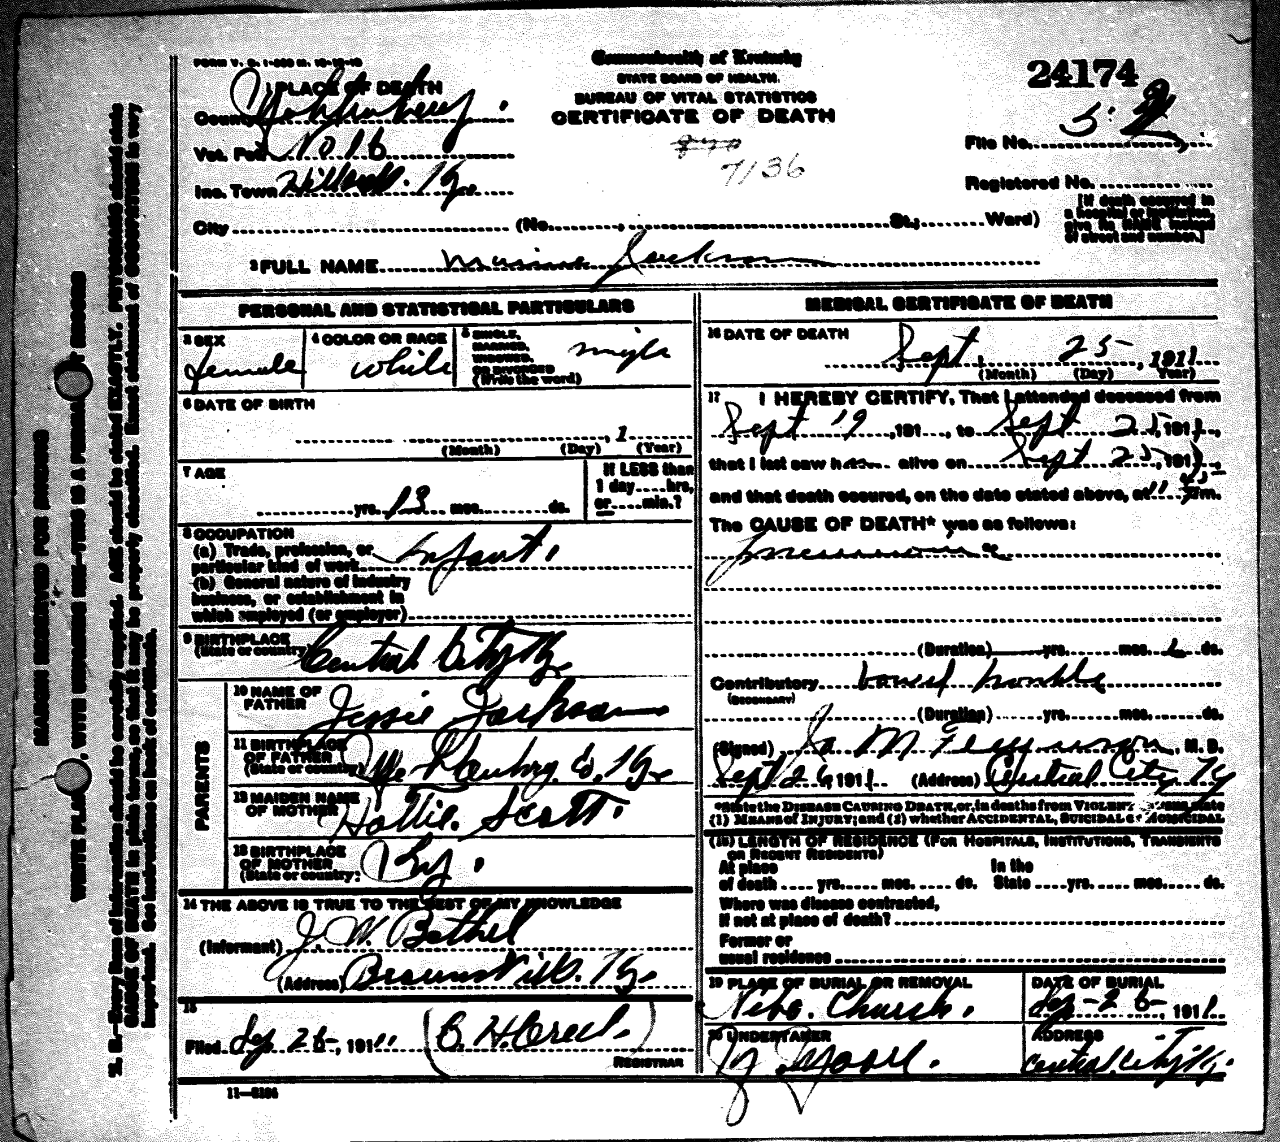 FORM V. S. 1
Commonwealth of Kentucky
STATE BOARD OF HEALTH.
BUREAU OF VITAL STATISTICS
CERTIFICATE OF DEATH
24174
7136
1 PLACE OF DEATH
County
Vot. Pct. No 16
Inc. Town
File No.
Registered No.
[If death occurred in
a hospital or institution,
give its NAME instead
of street and number.]
City (No. St.; Ward)
2 FULL NAME Jackson
PERSONAL AND STATISTICAL PARTICULARS
3 SEX
female
4 COLOR OR RACE
white
5 SINGLE,
MARRIED,
WIDOWED,
OR DIVORCED
(Write the word)
single
6 DATE OF BIRTH
, 1
(Month) (Day) (Year)
7 AGE
yrs. 13 mos. ds.
If LESS than
1 day hrs.
or min.?
8 OCCUPATION
(a) Trade, profession, or
particular kind of work Infant.
(b) General nature of industry
business, or establishment in
which employed (or employer)
9 BIRTHPLACE
(State or country) Central City Ky
PARENTS
10 NAME OF
FATHER Jessie Jackson
11 BIRTHPLACE
OF FATHER
(State or country) Co. Ky
12 MAIDEN NAME
OF MOTHER Hollie Scott.
13 BIRTHPLACE
OF MOTHER
(State or country) Ky.
14 THE ABOVE IS TRUE TO THE BEST OF MY KNOWLEDGE
(Informant) J. W. Bethel
(Address) Ky.
15
Filed Sep 26, 1911
REGISTRAR
11—3184
MEDICAL CERTIFICATE OF DEATH
16 DATE OF DEATH
Sept. 25, 1911
(Month) (Day) Year)
17 I HEREBY CERTIFY, That I attended deceased from
Sept 19, 191 , to Sept 25, 1911,
that I last saw h alive on Sept 25, 1911,
and that death occured, on the date stated above, at 11 m.
The CAUSE OF DEATH* was as follows:
(Duration) yrs. mos. ds.
Contributory bowel trouble
(SECONDARY)
(Duration) yrs. mos. ds.
(Signed) M. D.
Sept 26, 1911 (Address) Central City Ky
*State the DISEASE CAUSING DEATH, or, in deaths from VIOLENT CAUSES, state
(1) MEANS OF INJURY; and (2) whether ACCIDENTAL, SUICIDAL or HOMICIDAL
(18) LENGTH OF RESIDENCE (FOR HOSPITALS, INSTITUTIONS, TRANSIENTS
OR RECENT RESIDENTS)
At place In the
of death yrs. mos. ds. State yrs. mos. ds.
Where was disease contracted,
if not at place of death?
Former or
usual residence
19 PLACE OF BURIAL OR REMOVAL
Nebo. Church.
DATE OF BURIAL
Sep - 26 - 1911
20 UNDERTAKER
Moore.
ADDRESS
Central City Ky.
MARGIN RESERVED FOR BINDING
WRITE PLAINLY, WITH UNFADING INK—THIS IS A PERMANENT RECORD
N. B.—Every item of information should be carefully supplied. AGE should be stated EXACTLY. PHYSICIANS should state
CAUSE OF DEATH in plain terms, so that it may be properly classified. Exact statement of OCCUPATION is very
important. See instructions on back of certificate.